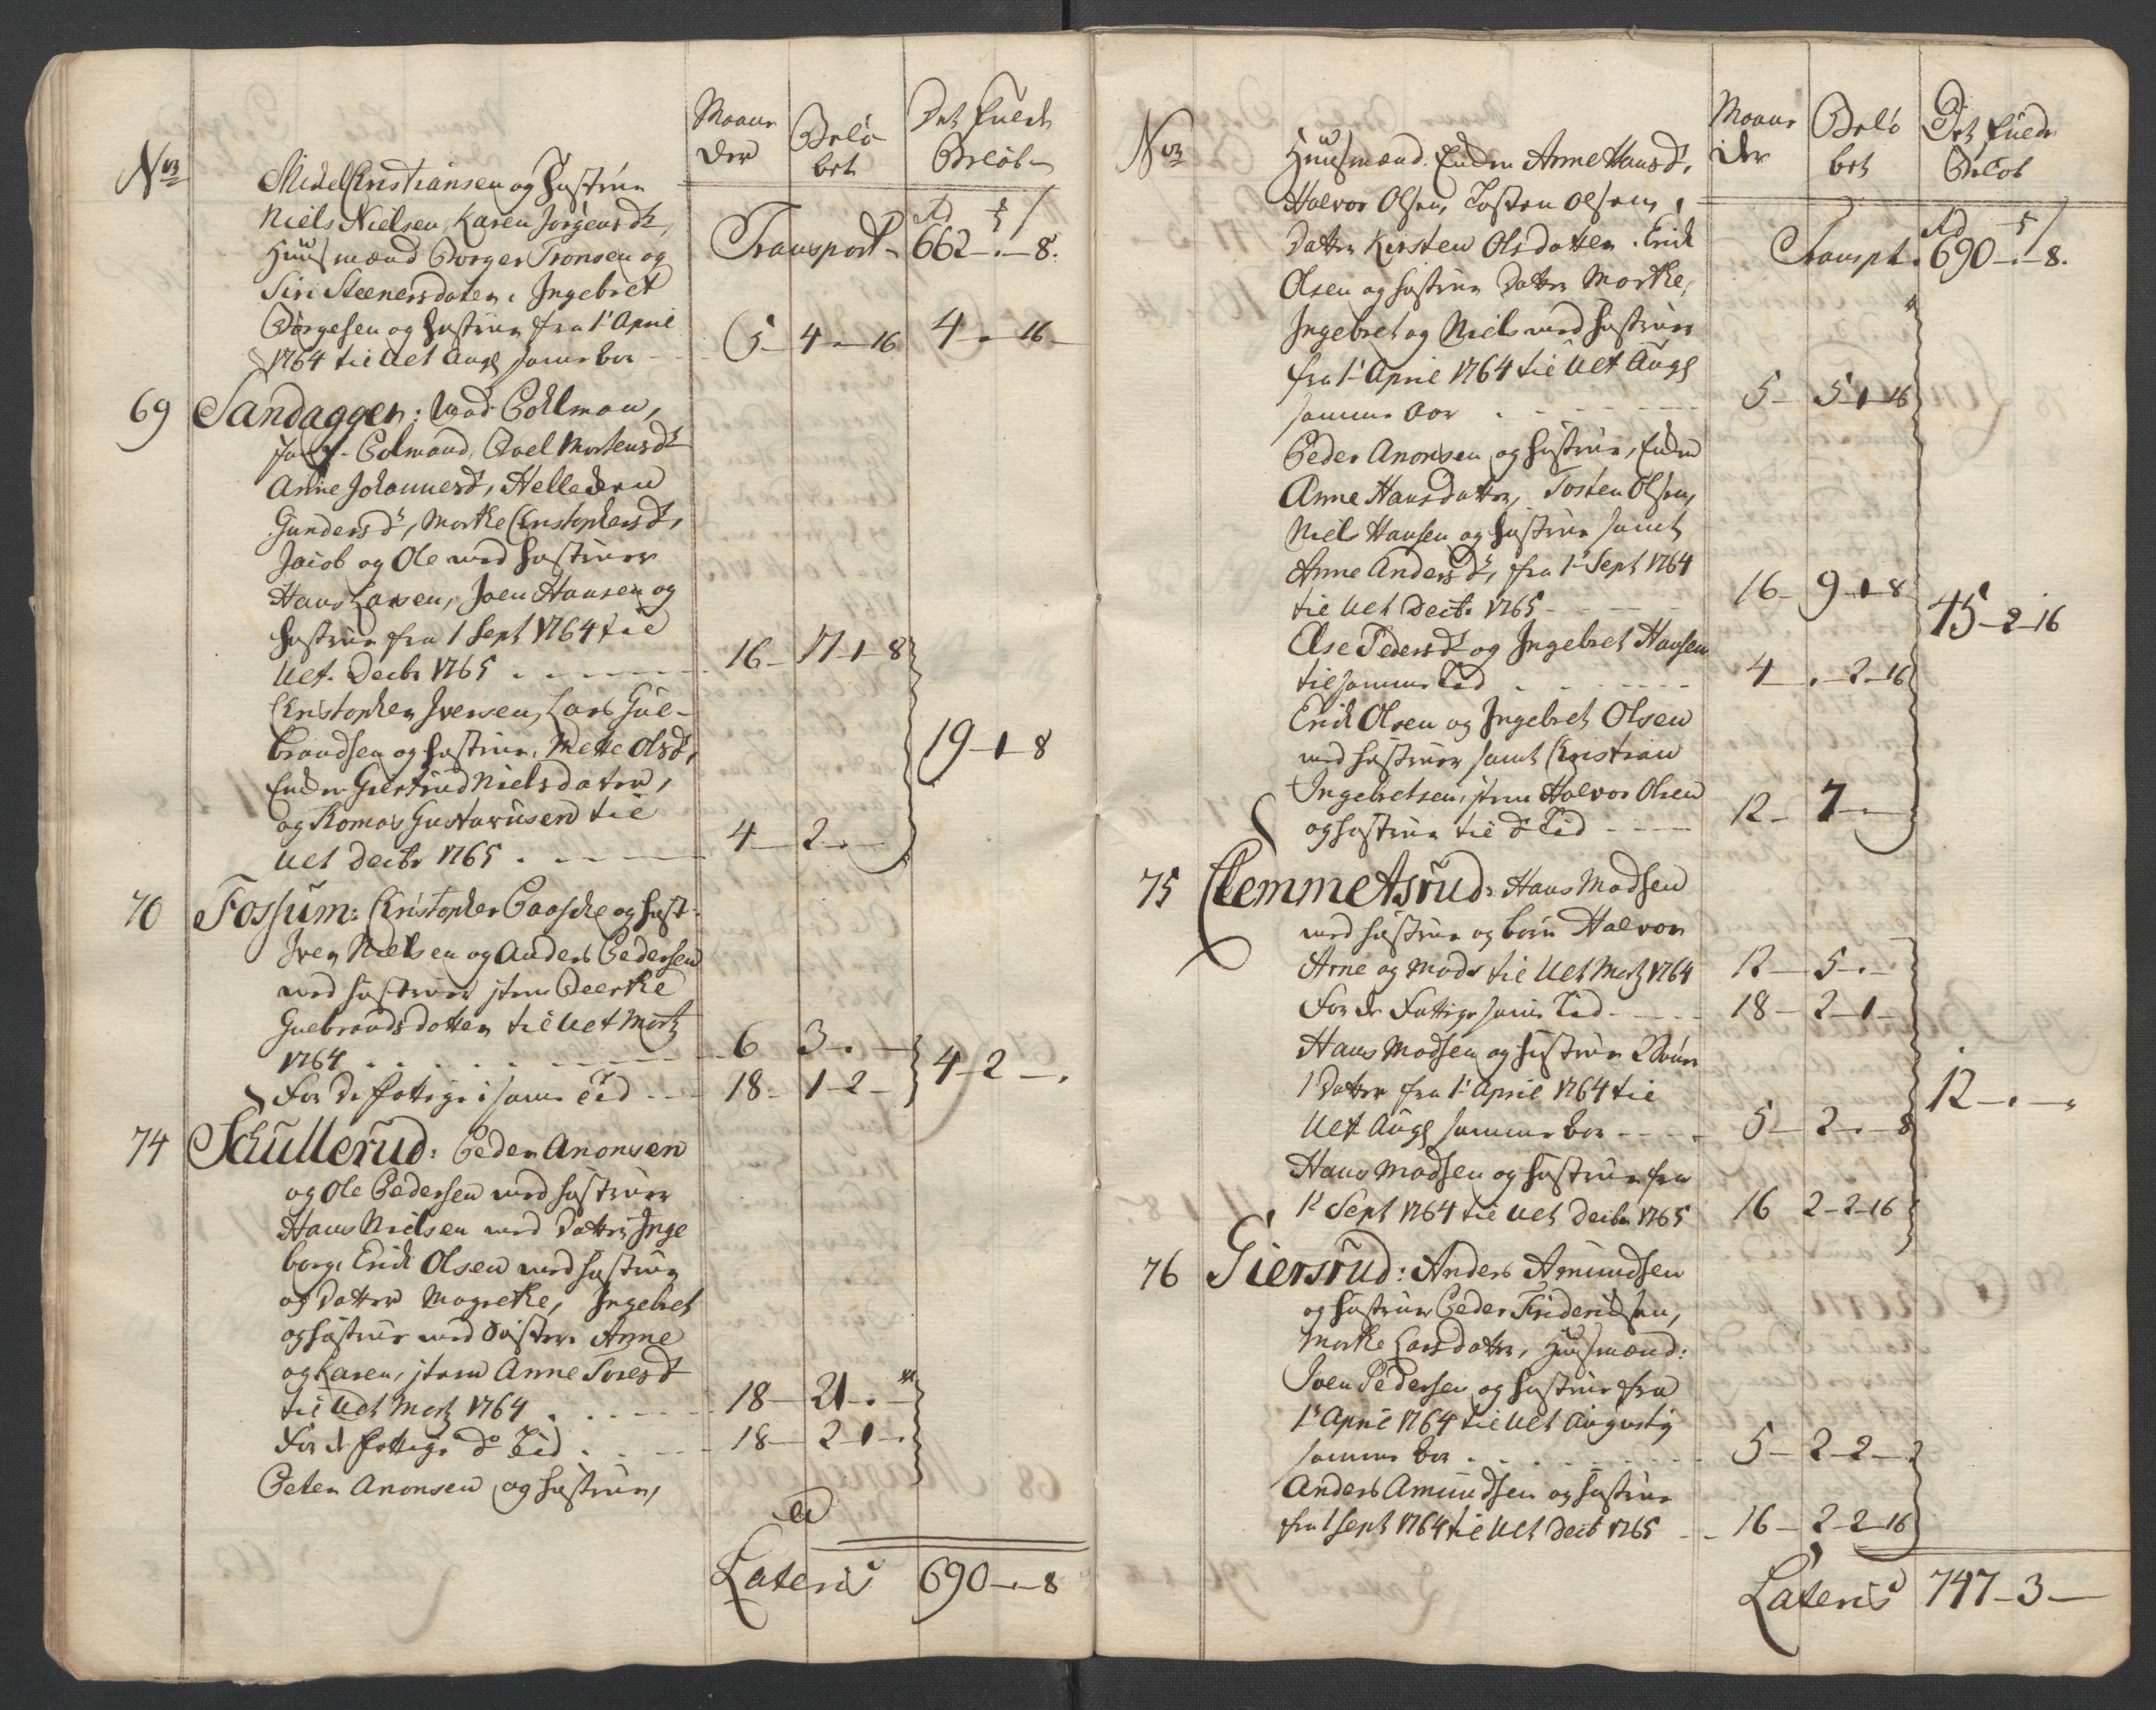 No
Maane
der
Belø
bet
Det fulde
Beløb
Mikel Christiansen og Hustrue
Niels Nielsen, Karen Jörgensdr,
Huusmænd Borger Tronsen og
Siri Steenersdaten, Ingebret
Börgesen og Hustrue fra 1 April
1764 til Ult Aug samme Aar - 5 - 4 - . - 16 4 - . - 16
Transport - 662 - . - 8.
69 Sandaggen: Mad Colman,
Colmand, Boel Mortensdr
Anne Johannesdr, Helle
Gundersdr, Marthe Christophersdr,
Jacob og Ole med Hustruer
Hans Larsen, Joen Hansen og
Hustrue fra 1 Sept 1764 til
Ult. Decbr 1765 . - - - 16 - 17 - 1 - 8
Christopher Iversen, Lars Gul-
brandsen og Hustrue, Mette Olsdr,
Enken Giertrud Nielsdater,
og Thomas Gustavusen til
Ult Decbr 1765 . - - - 4 - 2 - . -
19 - 1 - 8
70 Fossum: Christopher Paaske og Hust:
Iver Nielsen og Anders Pedersen
med Hustruer item Beerthe
Guebrandsdatter til Ult Marti
1764 . . . 6 3 - . -
For de fattige i samme Tid - - 18 - 1 - 2 -
4 - 2 - .
74 Schullerud: Peder Anonsen
og Ole Pedersen med Hustruer
Hans Nielsen med Datter Inge
borg, Erich Olsen med Hustrue
og Datter Magrethe, Ingebret
og Hustrue med Söstre Anne
og Karen, item Anne Toresdr
til Ult Marti 1764 . . . 18 - 21 - . -
For de fattige do Tid . - - 18 - 2 - 1 - .
Peter Anonsen og Hustrue,
Lateris 690 - . - 8
No
Maane
der
Belø
bet
Det fulde
Beløb
Huusmænd. Enken Anne Hansdr,
Halvor Olsen, Tosten Olsen,
Datter Kirsten Olsdatter. Erich
Olsen og Hustrue Datter Marthe,
Ingebret og Niels med Hustruer
fra 1 April 1764 til Ult Aug
samme Aar . - - - 5 - 5 - 1 - 16
Transpt. 690 - . - 8.
Peder Anonsen og Hustrue, Enken
Anne Hansdatter, Tosten Olsen,
Niels Hansen og Hustrue samt
Anne Andersdr, fra 1 Sept 1764
til Ult Decbr 1765 - - - 16 - 9 - 1 - 8
Else Pedersdr og Ingebret Hansen
til samme Tid . - - - 4 - . - 2 - 16
45 - 2 - 16
Erich Olsen og Ingebret Olsen
med Hustruer samt Christian
Ingebretsen, item Halvor Olsen
og Hustrue til do Tid - - - 12 - 7 - . -
75 Clemmetsrud: Hans Madsen
med Hustrue og börn Halvor
Arne og Mads til Ult Marti 1764 12 - 5 - . -
For de Fattige samme Tid - - - 18 - 2 - 1 -
Hans Madsen og Hustrue 2 Sönner
1 Datter fra 1 April 1764 til
Ult Aug samme Aar - - - 5 - 2 - . - 8
Hans Madsen og Hustrue fra
1 Sept 1764 til Ult Decbr 1765 16 2 - 2 - 16
12 - . - .
76 Giersrud: Anders Amundsen
og Hustrue Peder Friderichsen,
Marthe Larsdatter, Huusmænd:
Joen Pedersen og Hustrue fra
1 April 1764 til Ult Augusty
samme Aar . . . 5 - 2 - 2 - .
Anders Amundsen og Hustrue
fra 1 Sept 1764 til Ult Decb 1765 - - 16 - 2 - 2 - 16
Lateris 747 - 3 -